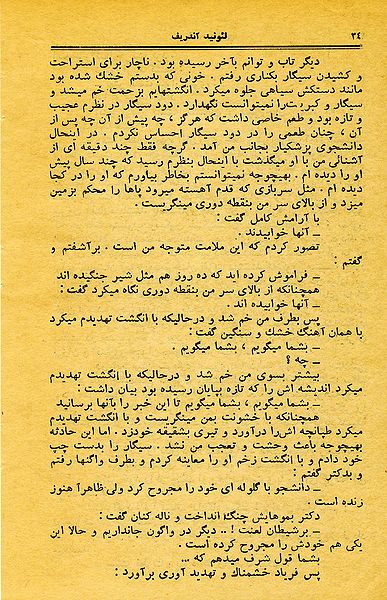 ۳٤ لئونید آندریف
دیگر تاب و توانم بآخر رسیده بود . ناچار برای استراحت
و کشیدن سیگار بکناری رفتم . خونی که بدستم خشك شده بود
مانند دستکش سیاهی جلوه میکرد . انگشتهایم بزحمت خم میشد و
سیگار و کبریت را نمیتوانست نگهدارد . دود سیگار در نظرم عجیب
و تازه بود و طعم خاصی داشت که هرگز ، چه پیش از آن چه پس از
آن ، چنان طعمی را در دود سیگار احساس نکردم . در اینحال
دانشجوی پزشکیار بجانب من آمد . گرچه فقط چند دقیقه ای از
آشنائی من با او میگذشت با اینحال بنظرم رسید که چند سال پیش
او را دیده ام . بهیچوجه نمیتوانستم بخاطر بیاورم که او را در کجا
دیده ام . مثل سربازی که قدم آهسته میرود پاها را محکم بزمین
میزد و از بالای سر من بنقطه دوری مینگریست .
با آرامش کامل گفت :
ـ آنها خوابیدند .
تصور کردم که این ملامت متوجه من است . برآشفتم و
گفتم :
ـ فراموش کرده اید که ده روز هم مثل شیر جنگیده اند
همچنانکه از بالای سر من بنقطه دوری نگاه میکرد گفت :
ـ آنها خوابیده اند .
پس بطرف من خم شد و درحالیکه با انگشت تهدیدم میکرد
با همان آهنگ خشك و سنگین گفت :
ـ بشما میگویم ، بشما میگویم .
ـ چه ؟
بیشتر بسوی من خم شد و درحالیکه با انگشت تهدیدم
میکرد اندیشه اش را که تازه بپایان رسیده بود بیان داشت :
ـ بشما میگویم ، بشما میگویم تا این خبر را بآنها برسانید
همچنانکه با خشونت بمن مینگریست و با انگشت تهدیدم
میکرد طپانچه اش را درآورد و تیری بشقیقه خودزد . اما این حادثه
بهیچوجه باعث وحشت و تعجب من نشد . سیگار را بدست چپ
خود دادم و با انگشت زخم او را معاینه کردم و بطرف واگنها رفتم
و بدکتر گفتم :
ـ دانشجو با گلوله ای خود را مجروح کرد ولی ظاهرآ هنوز
زنده است .
دکتر بموهایش چنگ انداخت و ناله کنان گفت :
ـ برشیطان لعنت ! .. دیگر در واگون جانداریم و حالا این
یکی هم خودش را مجروح کرده است .
بشما قول شرف میدهم که ...
پس فریاد خشمناك و تهدید آوری برآورد :